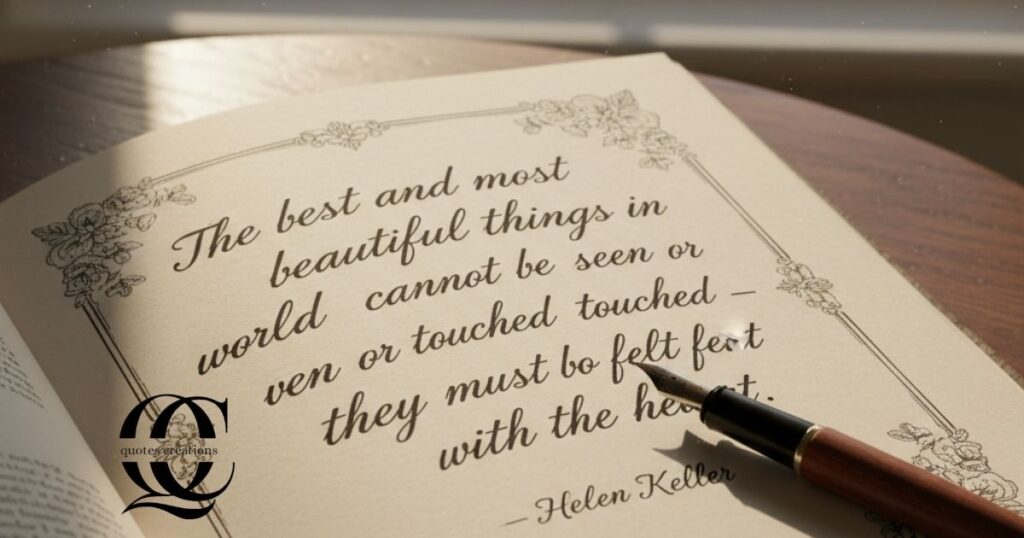 The best and most
beautiful things in
world cannot be seen or
ven or touched touched –
they must bo felt
with the
– Helen Keller
quotes creations